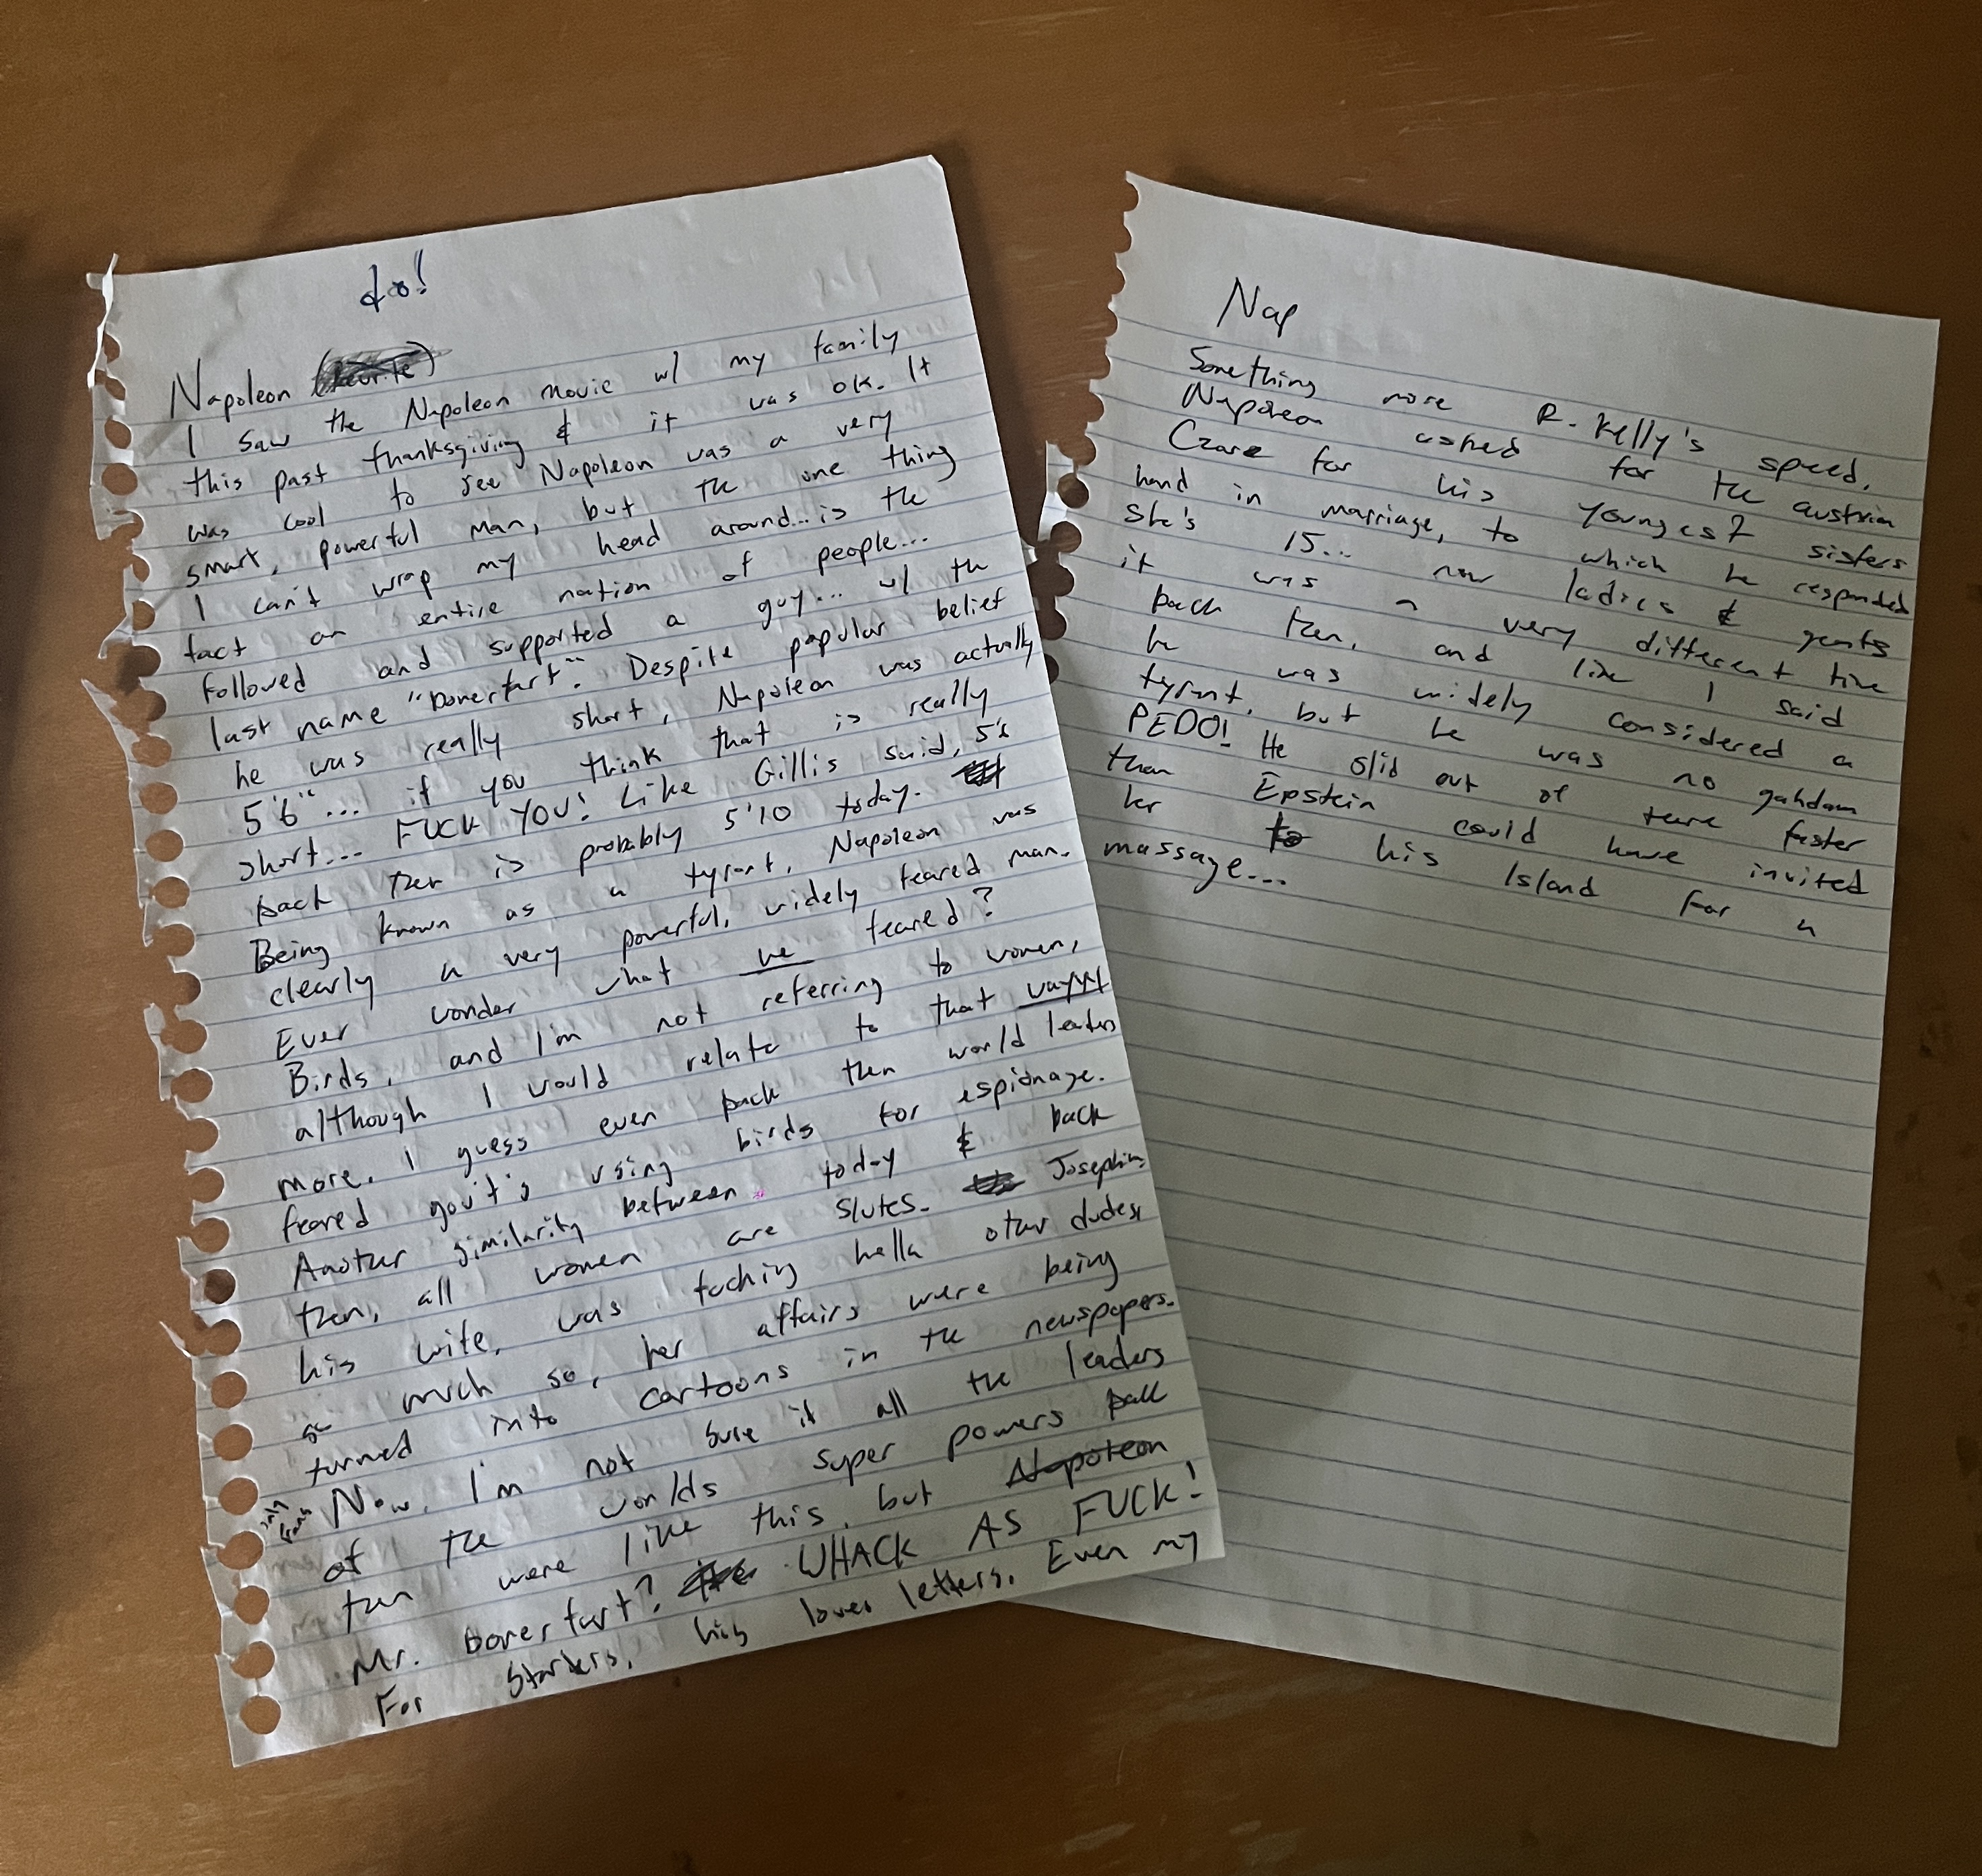 do!
Napoleon (Rewrite)
I saw the Napoleon movie w/ my family
this past thanksgiving & it was ok. It
was cool to see Napoleon was a very
smart, powerful man, but the one thing
I can't wrap my head around... is the
fact an entire nation of people...
followed and supported a guy... w/ the
last name "Bonerfart". Despite popular belief
he was really short, Napoleon was actually
5'6"... if you think that is really
short... FUCK YOU! Like Gillis said, 5'6
back then is probably 5'10 today.
Being known as a tyrant, Napoleon was
clearly a very powerful, widely feared man.
Ever wonder what he feared?
Birds, and I'm not referring to women,
although I would relate to that wayyy
more. I guess even back then world leaders
feared gov't's using birds for espionage.
Another similarity between today & back
then, all women are slutes. Josephin
his wife, was fuching hella other dudes,
so much so, her affairs were being
turned into cartoons in the newspapers.
Now, I'm not sure if all the leaders
of the worlds super powers back
then were like this, but Napoleon
Mr. Bonerfart? WHACK AS FUCK!
For starters, his loves letters. Even my
Nap
Something more R. Kelly's speed.
Napoleon asked for the austrian
Czare for his youngest sisters
hand in marriage, to which he responded
She's 15... now ladies & gents
it was a very different time
back then, and like I said
he was widely considered a
tyrant, but he was no gahdam
PEDO! He slid out of there faster
than Epstein could have invited
her to his Island for a
massage...